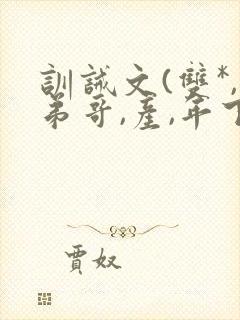 訓誡文(雙*,
弟哥,產,年下
賈奴